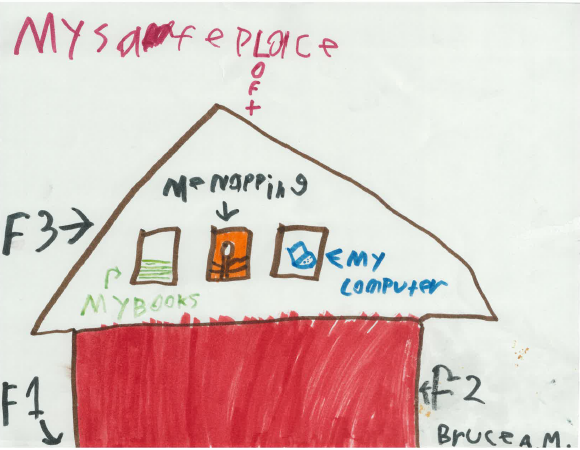 My safe place
LOFT
Me NAPPING
F3
MY BOOKS
MY
COMPUTER
F1
F2
Bruce A.M.